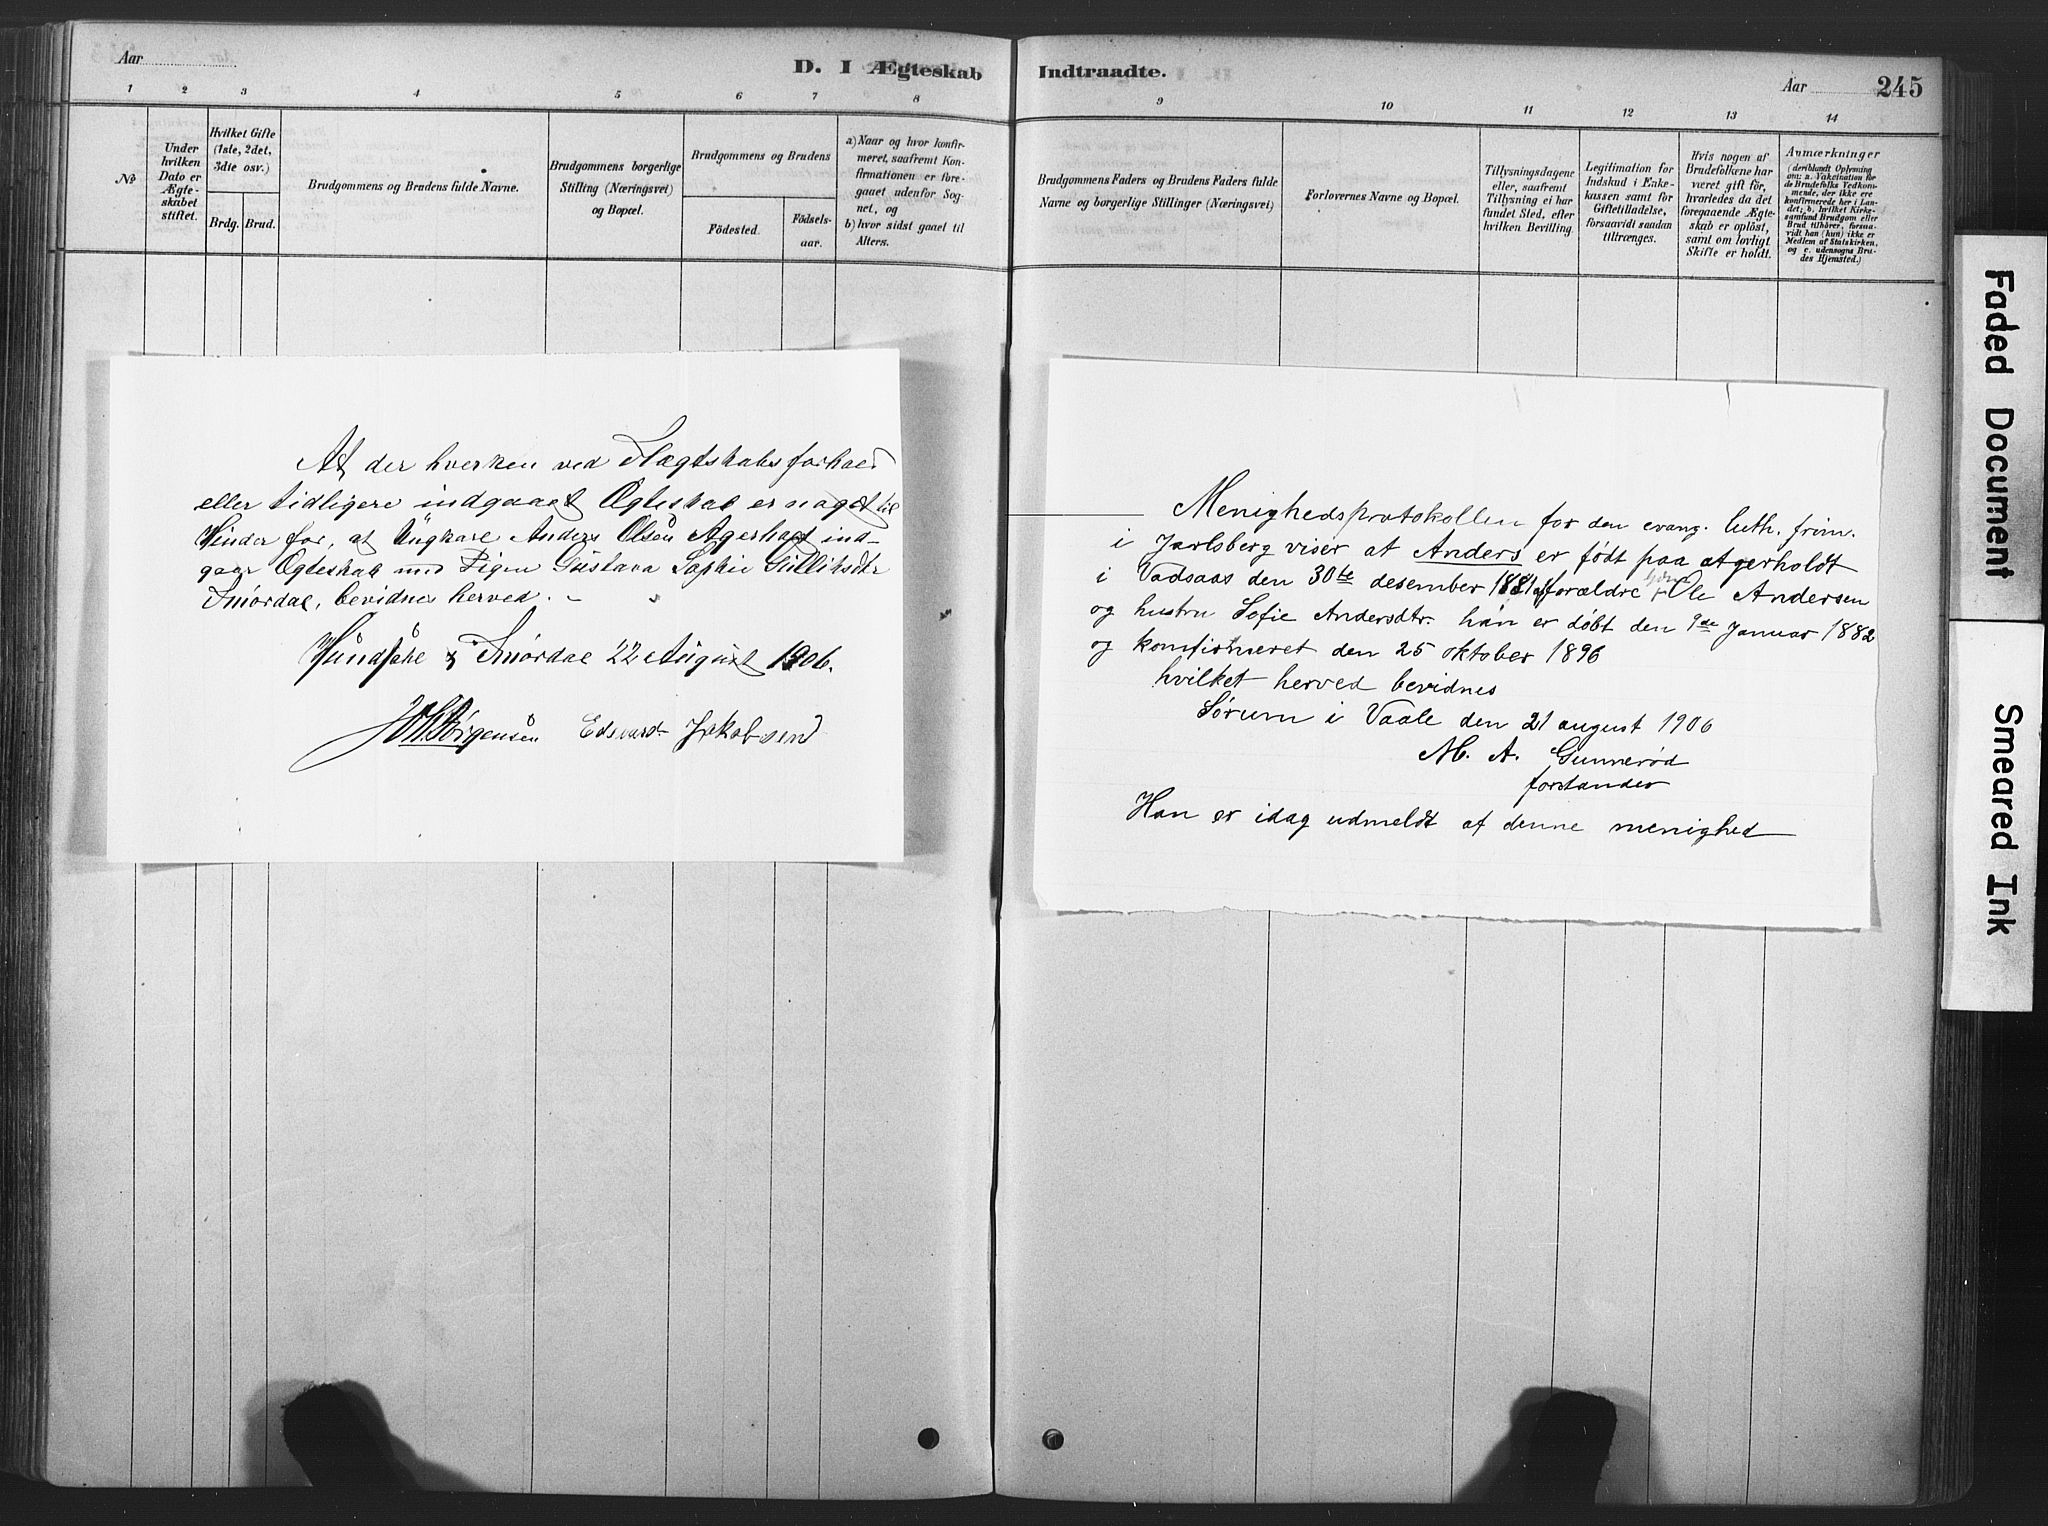 Aar
D. I Ægteskab
1
2
3
4
5
6
7
8
№
Under
hvilken
Dato er
Ægte-
skabet
stiftet.
Hvilket Gifte
(1ste, 2det,
3die osv.)
Brdg.
Brud.
Brudgommens og Brudens fulde Navne.
Brudgommens borgerlige
Stilling (Næringsvei)
og Bopæl.
Brudgommens og Brudens
Födested.
Födsels-
aar.
a) Naar og hvor konfir-
meret, saafremt Kon-
firmationen er fore-
gaaet udenfor Sog-
net, og
b) hvor sidst gaaet til
Alters.
At der hverken ved Slægtskabsforhold
eller tidligere indgaaet Ægteskab er noget til
Hinder for, at Ungkare Anders Olsen Agerholt ind-
gaar Ægteskab med Pigen Gustava Sophie Gulliksdtr
Smørdal, bevidnes herved. –
Smørdal 22 August 1906.
Edvard Jakobsen
Indtraadte.
Aar
245
9
10
11
12
13
14
Brudgommens Faders og Brudens Faders fulde
Navne og borgerlige Stillinger (Næringsvei)
Forlovernes Navne og Bopæl.
Tillysningsdagene
eller, saafremt
Tillysning ei har
fundet Sted, efter
hvilken Bevilling.
Legitimation for
Indskud i Enke-
kassen samt for
Giftetilladelse,
forsaavidt saadan
tiltrænges.
Hvis nogen af
Brudefolkene har
været gift för,
hvorledes da det
foregaaende Ægte-
skab er oplöst,
samt om lovligt
Skifte er holdt.
Anmærkninger
(deriblandt Oplysning
om: a. Vakcination for
de Brudefolks Vedkom-
mende, der ikke ere
konfirmerede her i Lan-
det; b. hvilket Kirke-
samfund Brudgom eller
Brud tilhörer, forsaa-
vidt han (hun) ikke er
Medlem af Statskirken,
og c. udensogns Bru-
des Hjemsted.)
Menighedsprotokollen for den evang. luth. frim.
i Jarlsberg viser at Anders er født paa Agerholdt
i Vadsaas den 30te desember 1881 af forældre Ole Andersen
og hustru Sofie Andersdtr. han er døbt den 9de Januar 1882
og konfirmeret den 25 oktober 1896
hvilket herved bevidnes
Sørum i Vaale den 21 august 1906
M. A. Gunnerød
forstander
Han er idag udmeldt af denne menighed
Faded Document
Smeared Ink